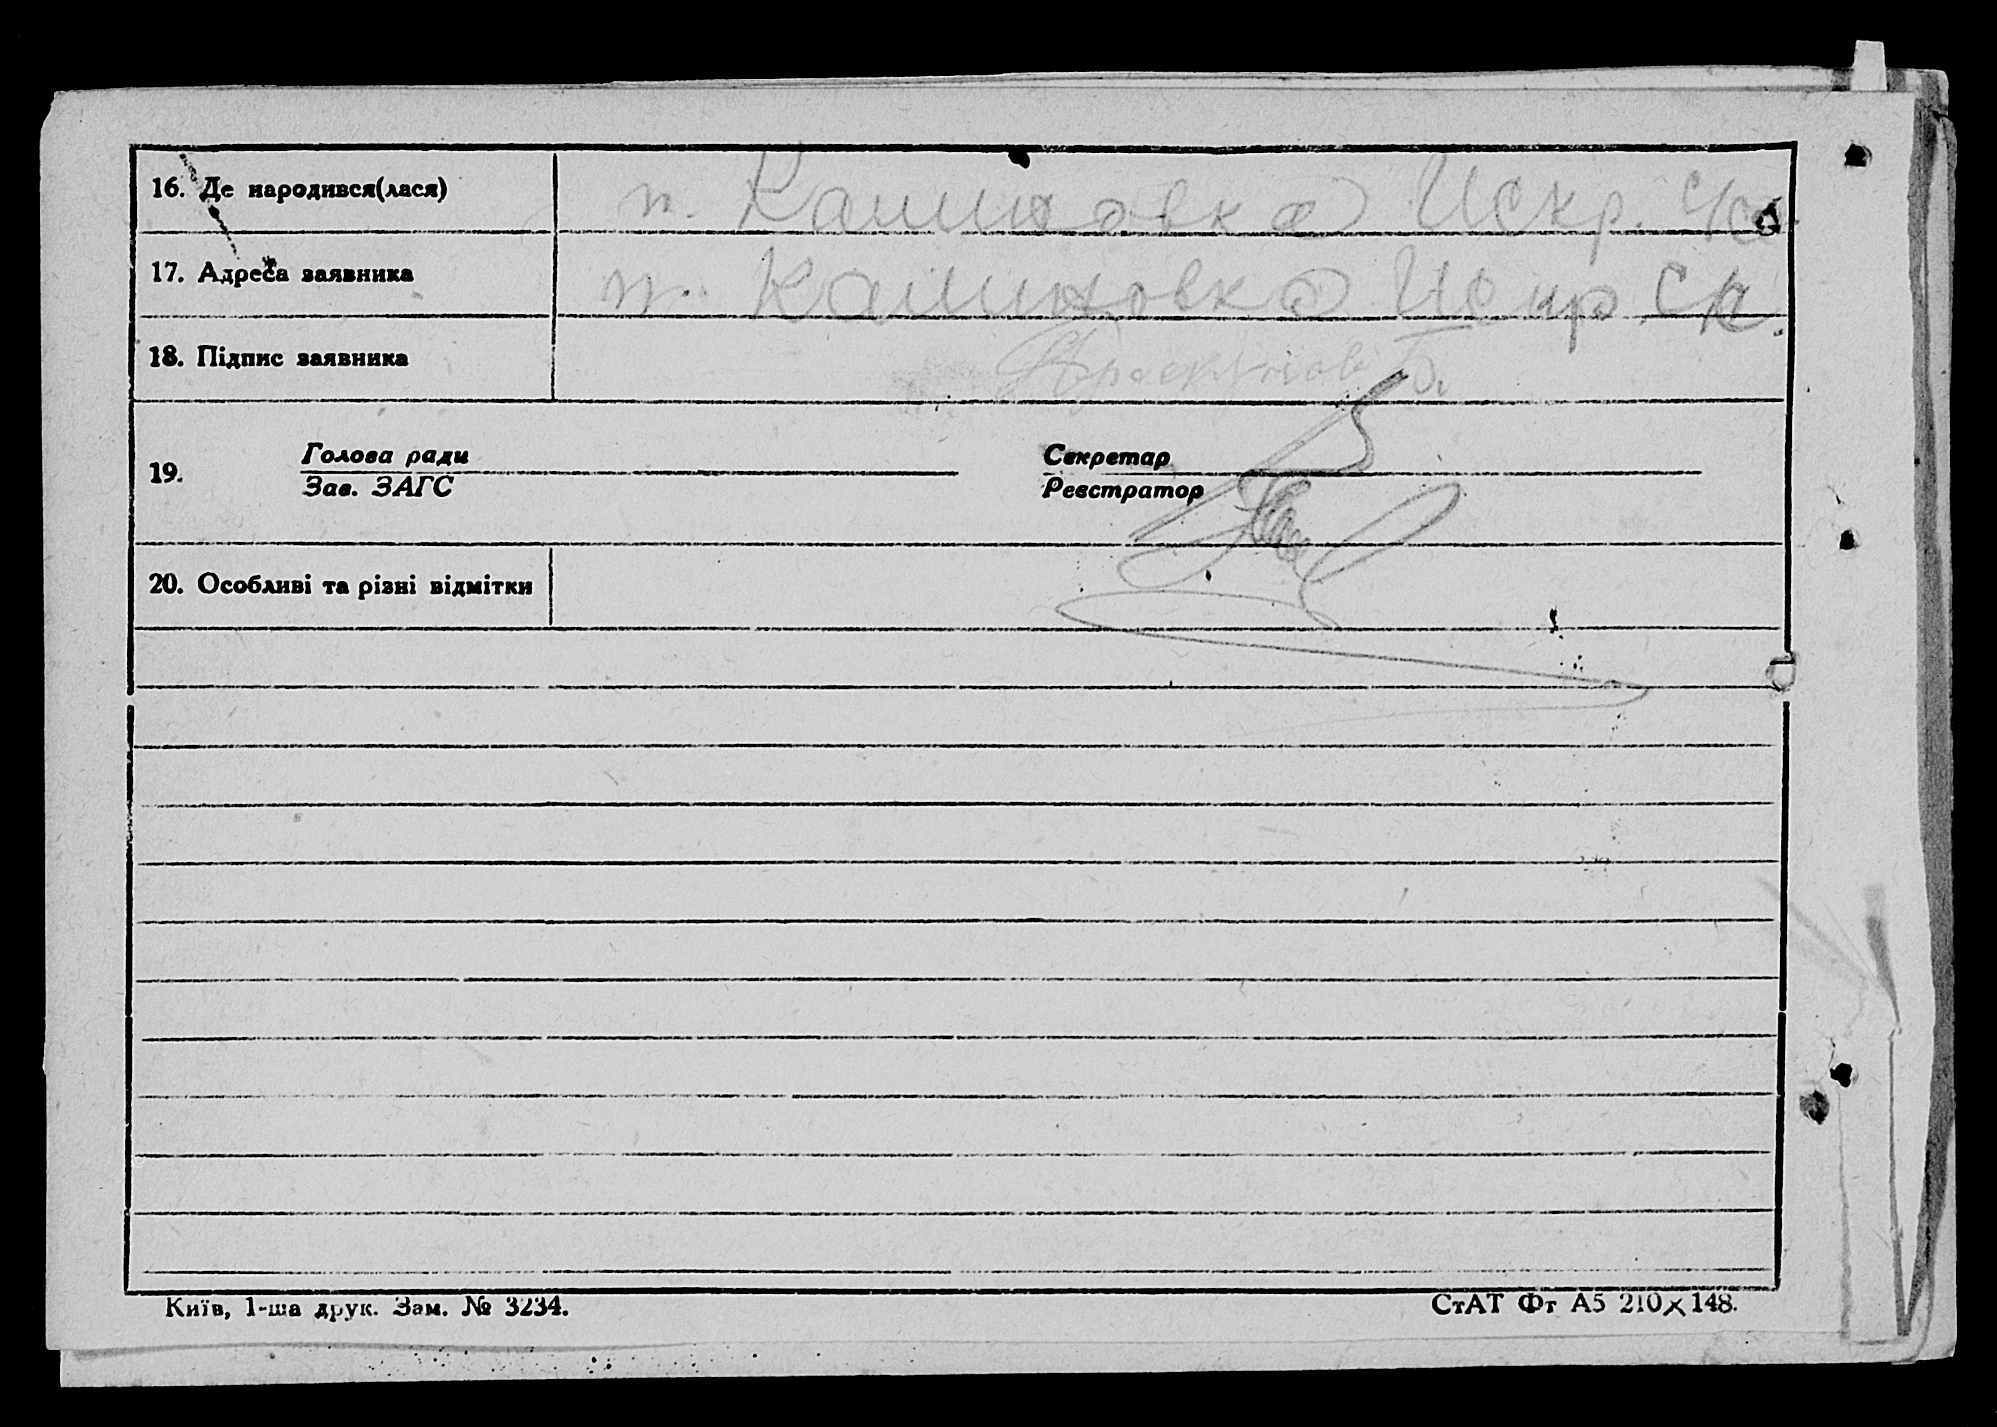 16. Де народився(лася) п. Калиновка Искр. с/с
17. Адреса заявника п. Калиновка Искр. с/с.
18. Підпис заявника
19. Голова ради Секретар
Зав. ЗАГС Реєстратор
20. Особливі та різні відмітки
Київ, 1-ша друк. Зам. № 3234. СтАТ Фт А5 210×148.